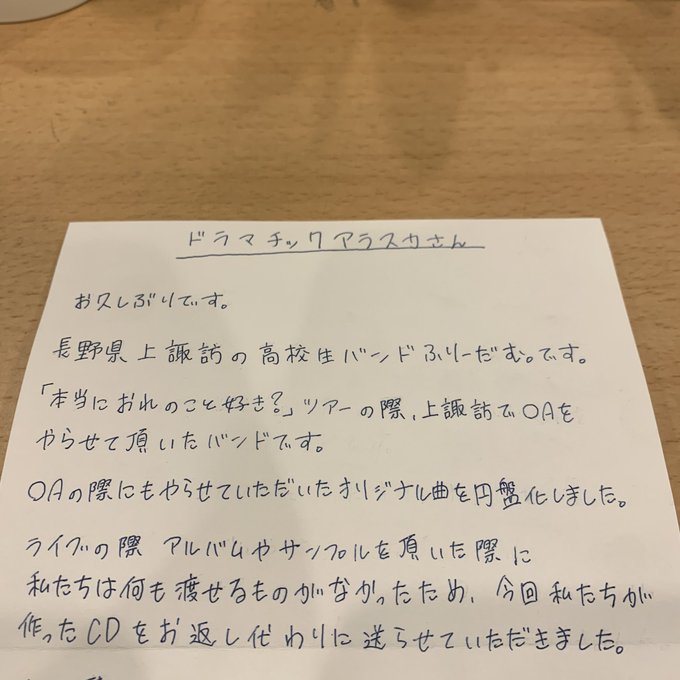 ドラマチックアラスカさん
お久しぶりです。
長野県上諏訪の高校生バンドふりーだむ。です。
「本当におれのこと好き?」ツアーの際、上諏訪でOAを
やらせて頂いたバンドです。
OAの際にもやらせていただいたオリジナル曲を円盤化しました。
ライブの際 アルバムやサンプルを頂いた際に
私たちは何も渡せるものがなかったため、今回私たちが
作ったCDをお返し代わりに送らせていただきました。